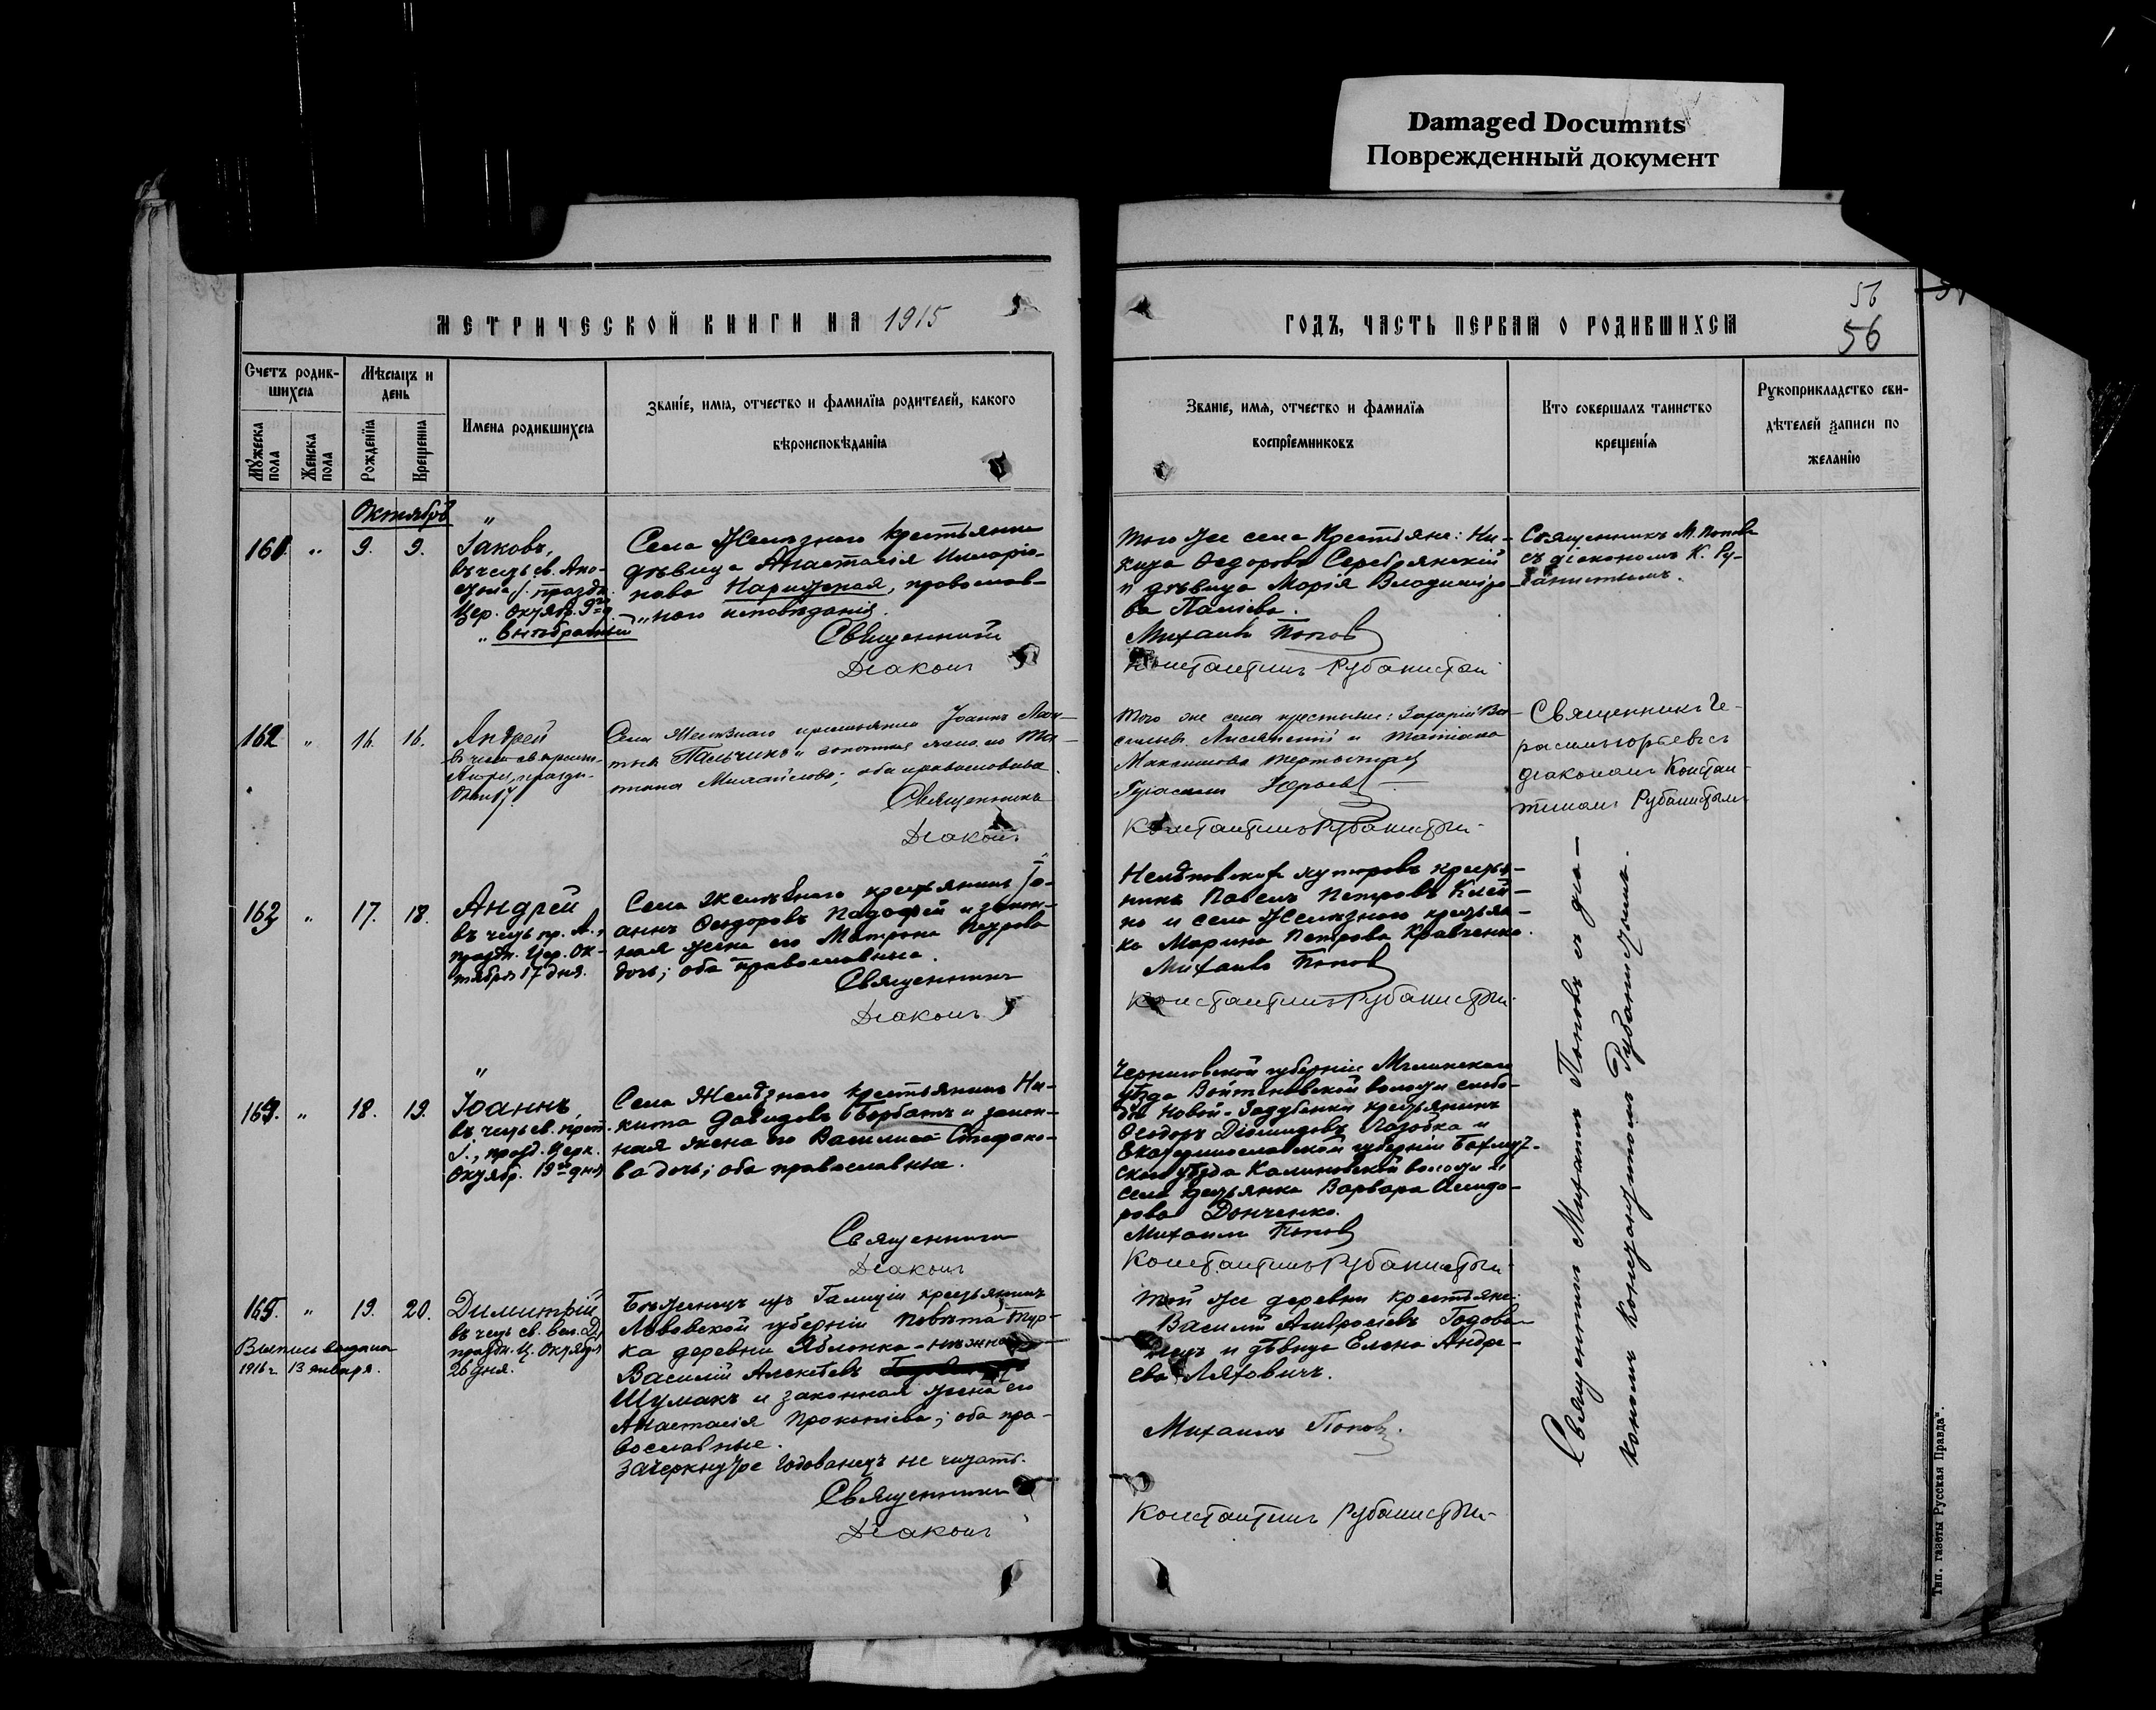 Damaged Documnts
Поврежденный документ
МЕТРИЧЕСКОЙ КНИГИ НА 1915
ГОДЪ, ЧАСТЬ ПЕРВАЯ О РОДИВШИХСЯ
56
56
Счетъ родив-
шихся
Мѣсяцъ и
день
Мужеска пола
Женска пола
Рожденія
Крещенія
Имена родившихся
Званіе, имя, отчество и фамилія родителей, какого
вѣроисповѣданія
Званіе, имя, отчество и фамилія
воспріемниковъ
Кто совершалъ таинство
крещенія
Рукоприкладство сви-
дѣтелей записи по
желанію
Октябрь
161 " 9. 9.
Іаковъ,
въ честь св. Апо-
стола І. праздн.
Цер. Октяб. 9го д.
"внѣбрачный"
Села Желѣзнаго крестьянка
дѣвица Анастасія Иларіо-
нова Нарижная, православ-
"наго исповѣданія.
Священникъ
Діаконъ
Того же села Крестьяне: Ни-
кита Ѳедоровъ Серебрянскій
и дѣвица Марія Владиміро-
ва Паліева.
Михаилъ Попов
Константинъ Рубанистый
Священникъ М. Поповъ
съ діакономъ К. Ру-
банистымъ.
162 " 16. 16.
Андрей
Октяб. 17.
Села Желѣзнаго крестьянинъ Іоаннъ
Пальчикъ и законная жена его
Михайлова; оба православные
Священникъ
Діаконъ
Того же села крестьяне: Захарій Ва-
сильев. и Татіана
Максимова
Герасимъ Юрьев
Константинъ Рубанистый
Священникъ Ге-
расимъ Юрьевъ съ
діакономъ Констан-
тиномъ Рубанистымъ
163 " 17. 18.
Андрей
въ честь пр. А.,
праздн. Цер. Ок-
тября 17 дня.
Села Желѣзнаго крестьянинъ Іо-
аннъ Ѳеодоровъ и закон-
ная жена его Матрона Петрова
дочь; оба православные.
Священникъ
Діаконъ
хуторовъ кресть-
нинъ Павелъ Петровъ Клей-
но и села Желѣзнаго крестьян-
ка Марина Петрова Кравченко.
Михаилъ Попов
Константинъ Рубанистый
164. " 18. 19.
Іоаннъ,
въ честь св. прп.
І., празд. Церк.
Октябр. 19го дня
Села Желѣзнаго крестьянинъ Ни-
кита Давидовъ Горбатъ и закон-
ная жена его Василиса Стефано-
ва дочь; оба православные.
Священникъ
Діаконъ
Черниговской губерніи Мглинскаго
уѣзда Войтеновской волости слобо-
ды Новой-Задубенки крестьянинъ
Ѳеодоръ Діомидовъ Лазобка и
Екатеринославской губерніи Бахмут-
скаго уѣзда Калиновской волости и
села крестьянка Варвара Исидо-
рова Донченко.
Михаилъ Попов
Константинъ Рубанистый
165. " 19. 20.
Димитрій
въ честь св. вел. Д.,
праздн. Ц. Октября
26 дня.
Выпись выдана
1916 г. 13 января.
Бѣженецъ изъ Галиціи крестьянинъ
Львовской губерніи Повѣта Тур-
ка деревни Яблонка-нижняя
Василій Алексѣевъ
Шумакъ и законная жена его
Анастасія Прокопіева; оба пра-
вославные.
Зачеркнутое Годованецъ не читать.
Священникъ
Діаконъ
Той же деревни крестьяне:
Василій Амвросіевъ Годова-
нецъ и дѣвица Елена Андре-
ева Ляховичъ.
Михаилъ Поповъ
Константинъ Рубанистый
Священникъ Михаилъ Поповъ съ діа-
кономъ Константиномъ Рубанистымъ.
Тип. газеты „Русская Правда“.